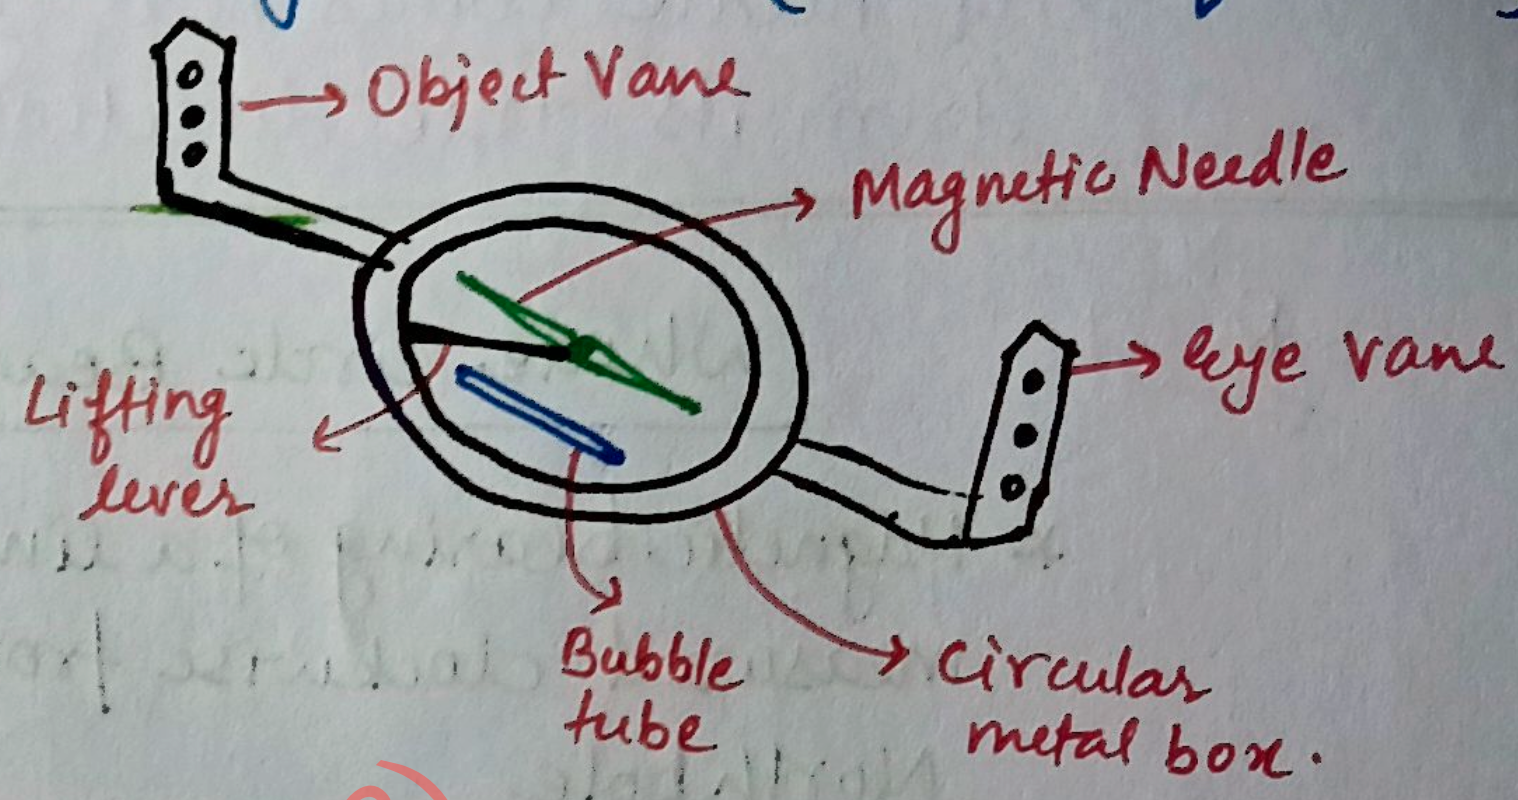 Object Vane
Magnetic Needle
Eye Vane
Lifting
lever
Bubble
tube
Circular
metal box.